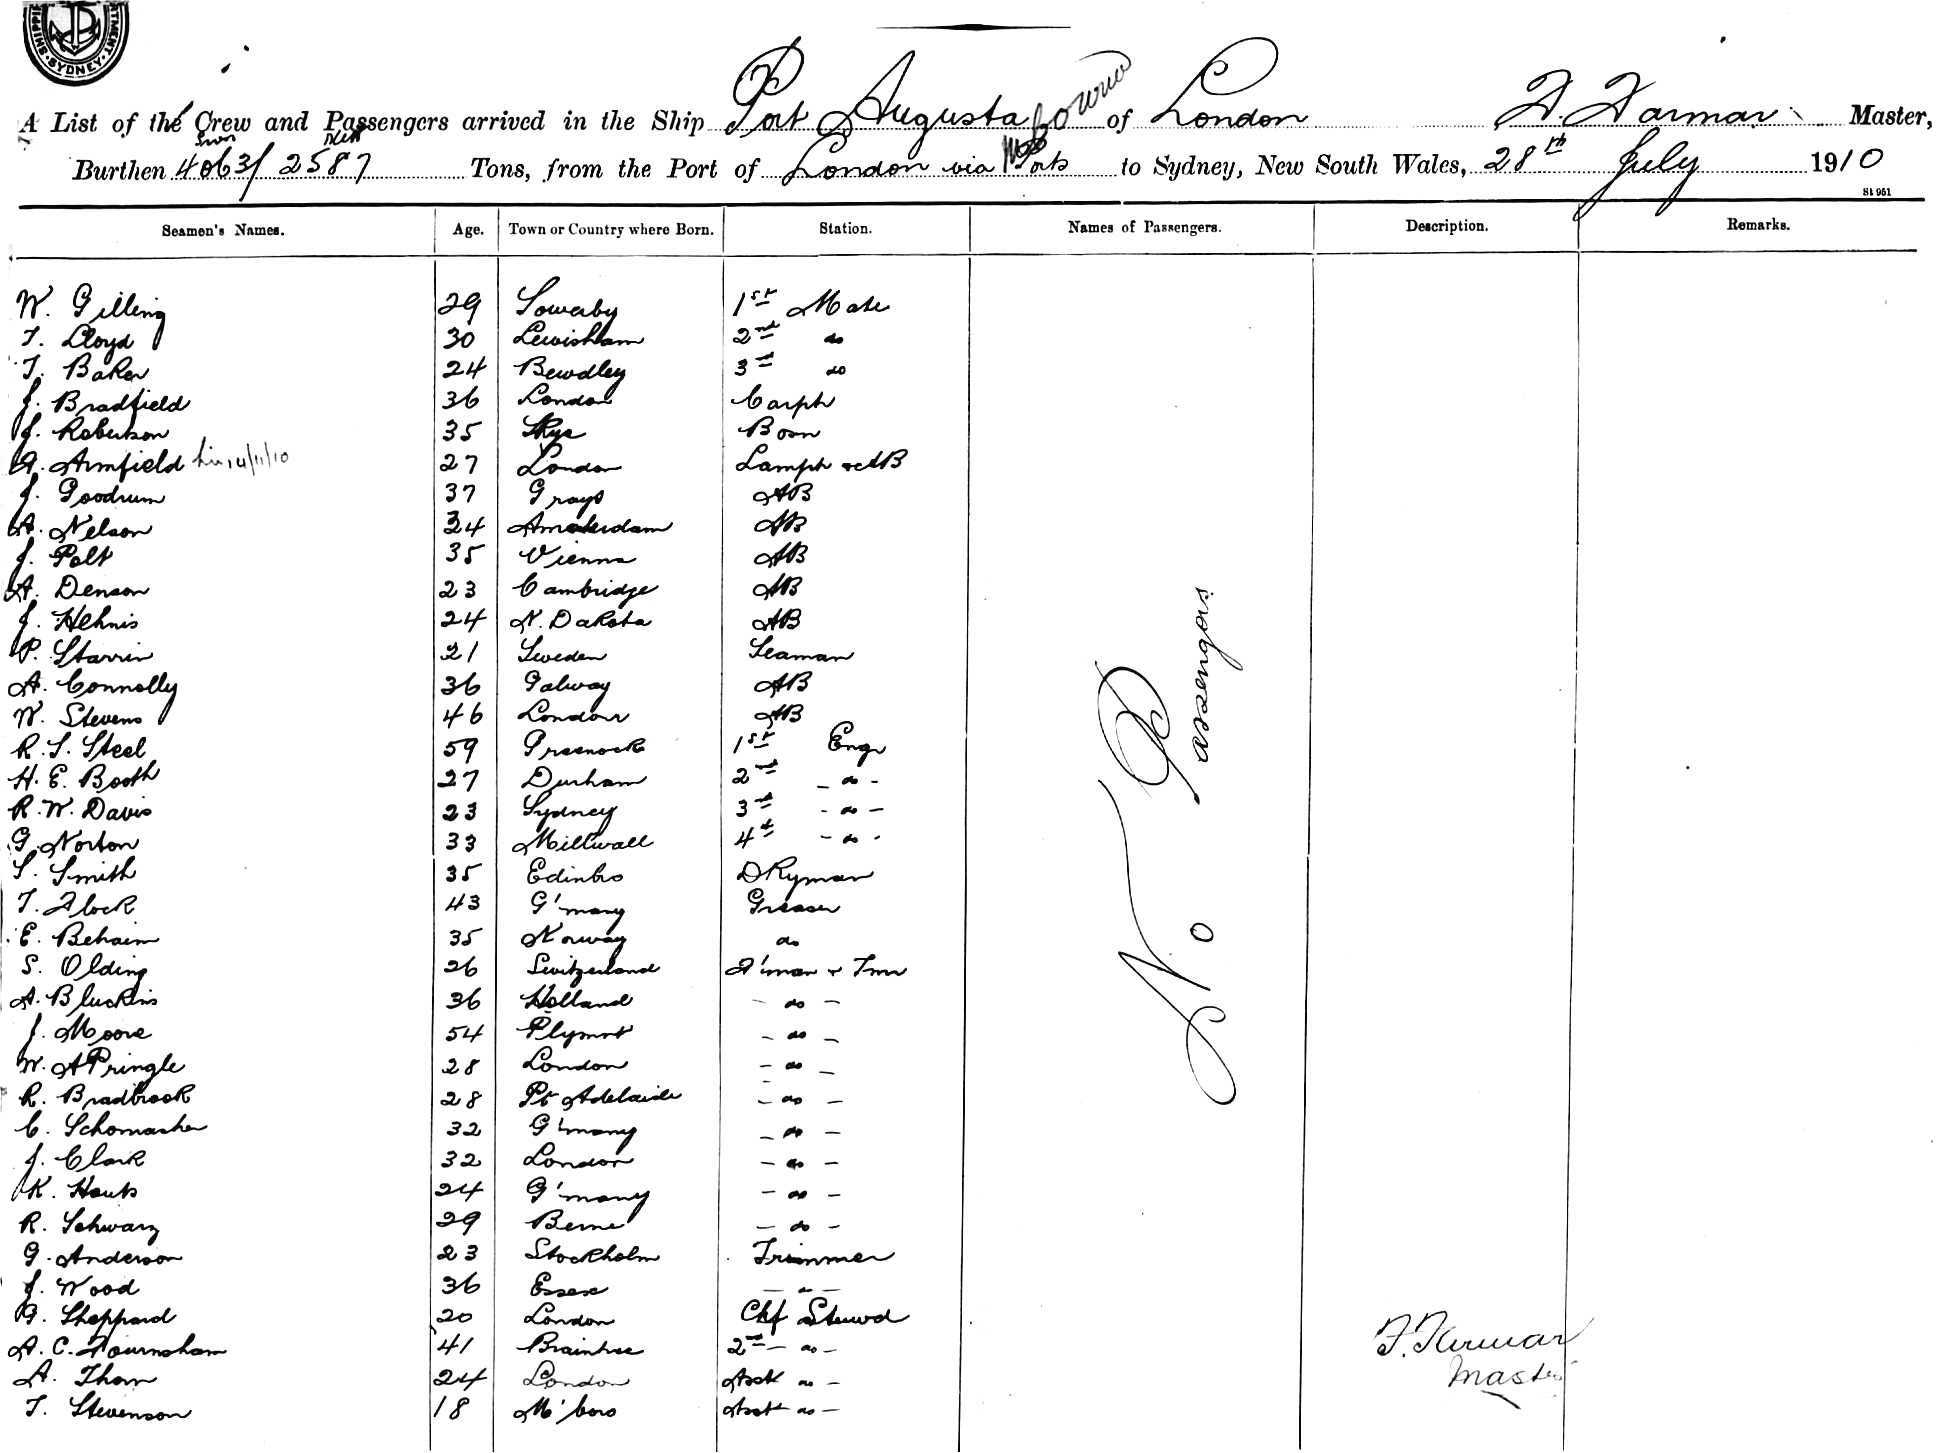 SHIPPI TMENT
SYDNEY
A List of the Crew and Passengers arrived in the Ship Port Augusta of London F. Farmar Master,
Burthen 4063/2587 Tons, from the Port of London via Ports to Sydney, New South Wales, 28th July 1910
St 951
Seamen's Names. Age. Town or Country where Born. Station. Names of Passengers. Description. Remarks.
W. Gilling 29 Sowerby 1st Mate
T. Lloyd 30 Lewisham 2nd do
T. Baker 24 Bewdley 3rd do
J. Bradfield 36 London Carptr
J. Robertson 35 Skye Bosn
A. Armfield 14/11/10 27 London Lamptr & AB
J. Goodrum 37 Grays AB
A. Nelson 34 Amsterdam AB
J. Polt 35 Vienna AB
A. Denson 23 Cambridge AB
J. Hehnis 24 N. Dakota AB
P. Starrin 21 Sweden Seaman
A. Connolly 36 Galway AB
W. Stevens 46 London AB
R. S. Steel 59 Greenock 1st Engr
H. E. Booth 27 Durham 2nd - do -
R. W. Davis 23 Sydney 3rd - do -
G. Norton 33 Millwall 4th - do -
S. Smith 35 Edinbro DKyman
T. Flock 43 G'many Greaser
E. Behaim 35 Norway do
S. Olding 26 Switzerland F'man & Tmr
A. Bluckins 36 Holland - do -
J. Moore 54 Plymot - do -
W. A Pringle 28 London - do -
R. Bradbrook 28 Pt Adelaide - do -
C. Schomacher 32 G'many - do -
J. Clark 32 London - do -
K. Hauts 24 G'many - do -
R. Schwarz 29 Berne - do -
G. Anderson 23 Stockholm Trimmer
J. Wood 36 Essex - do -
G. Sheppard 20 London Chf Stewd
A. C. Fournsham 41 Braintree 2nd - do -
A. Thom 24 London Asst do -
T. Stevenson 18 M'boro Asst do -
No Passengers
F. Farmar
Master